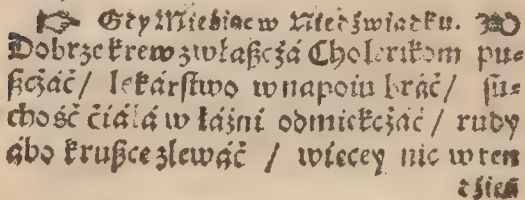 ☞ Gdy Mieśiąc w Niedźwiadku.
Dobrze krew zwłaßcżá Cholerikom pu⸗
ßcżáć / lekárſtwo w napoiu bráć / ſu⸗
chość ćiáłá w łáźni odmiekcżáć / rudy
ábo krußce zlewáć / więcey nic w ten
dźień